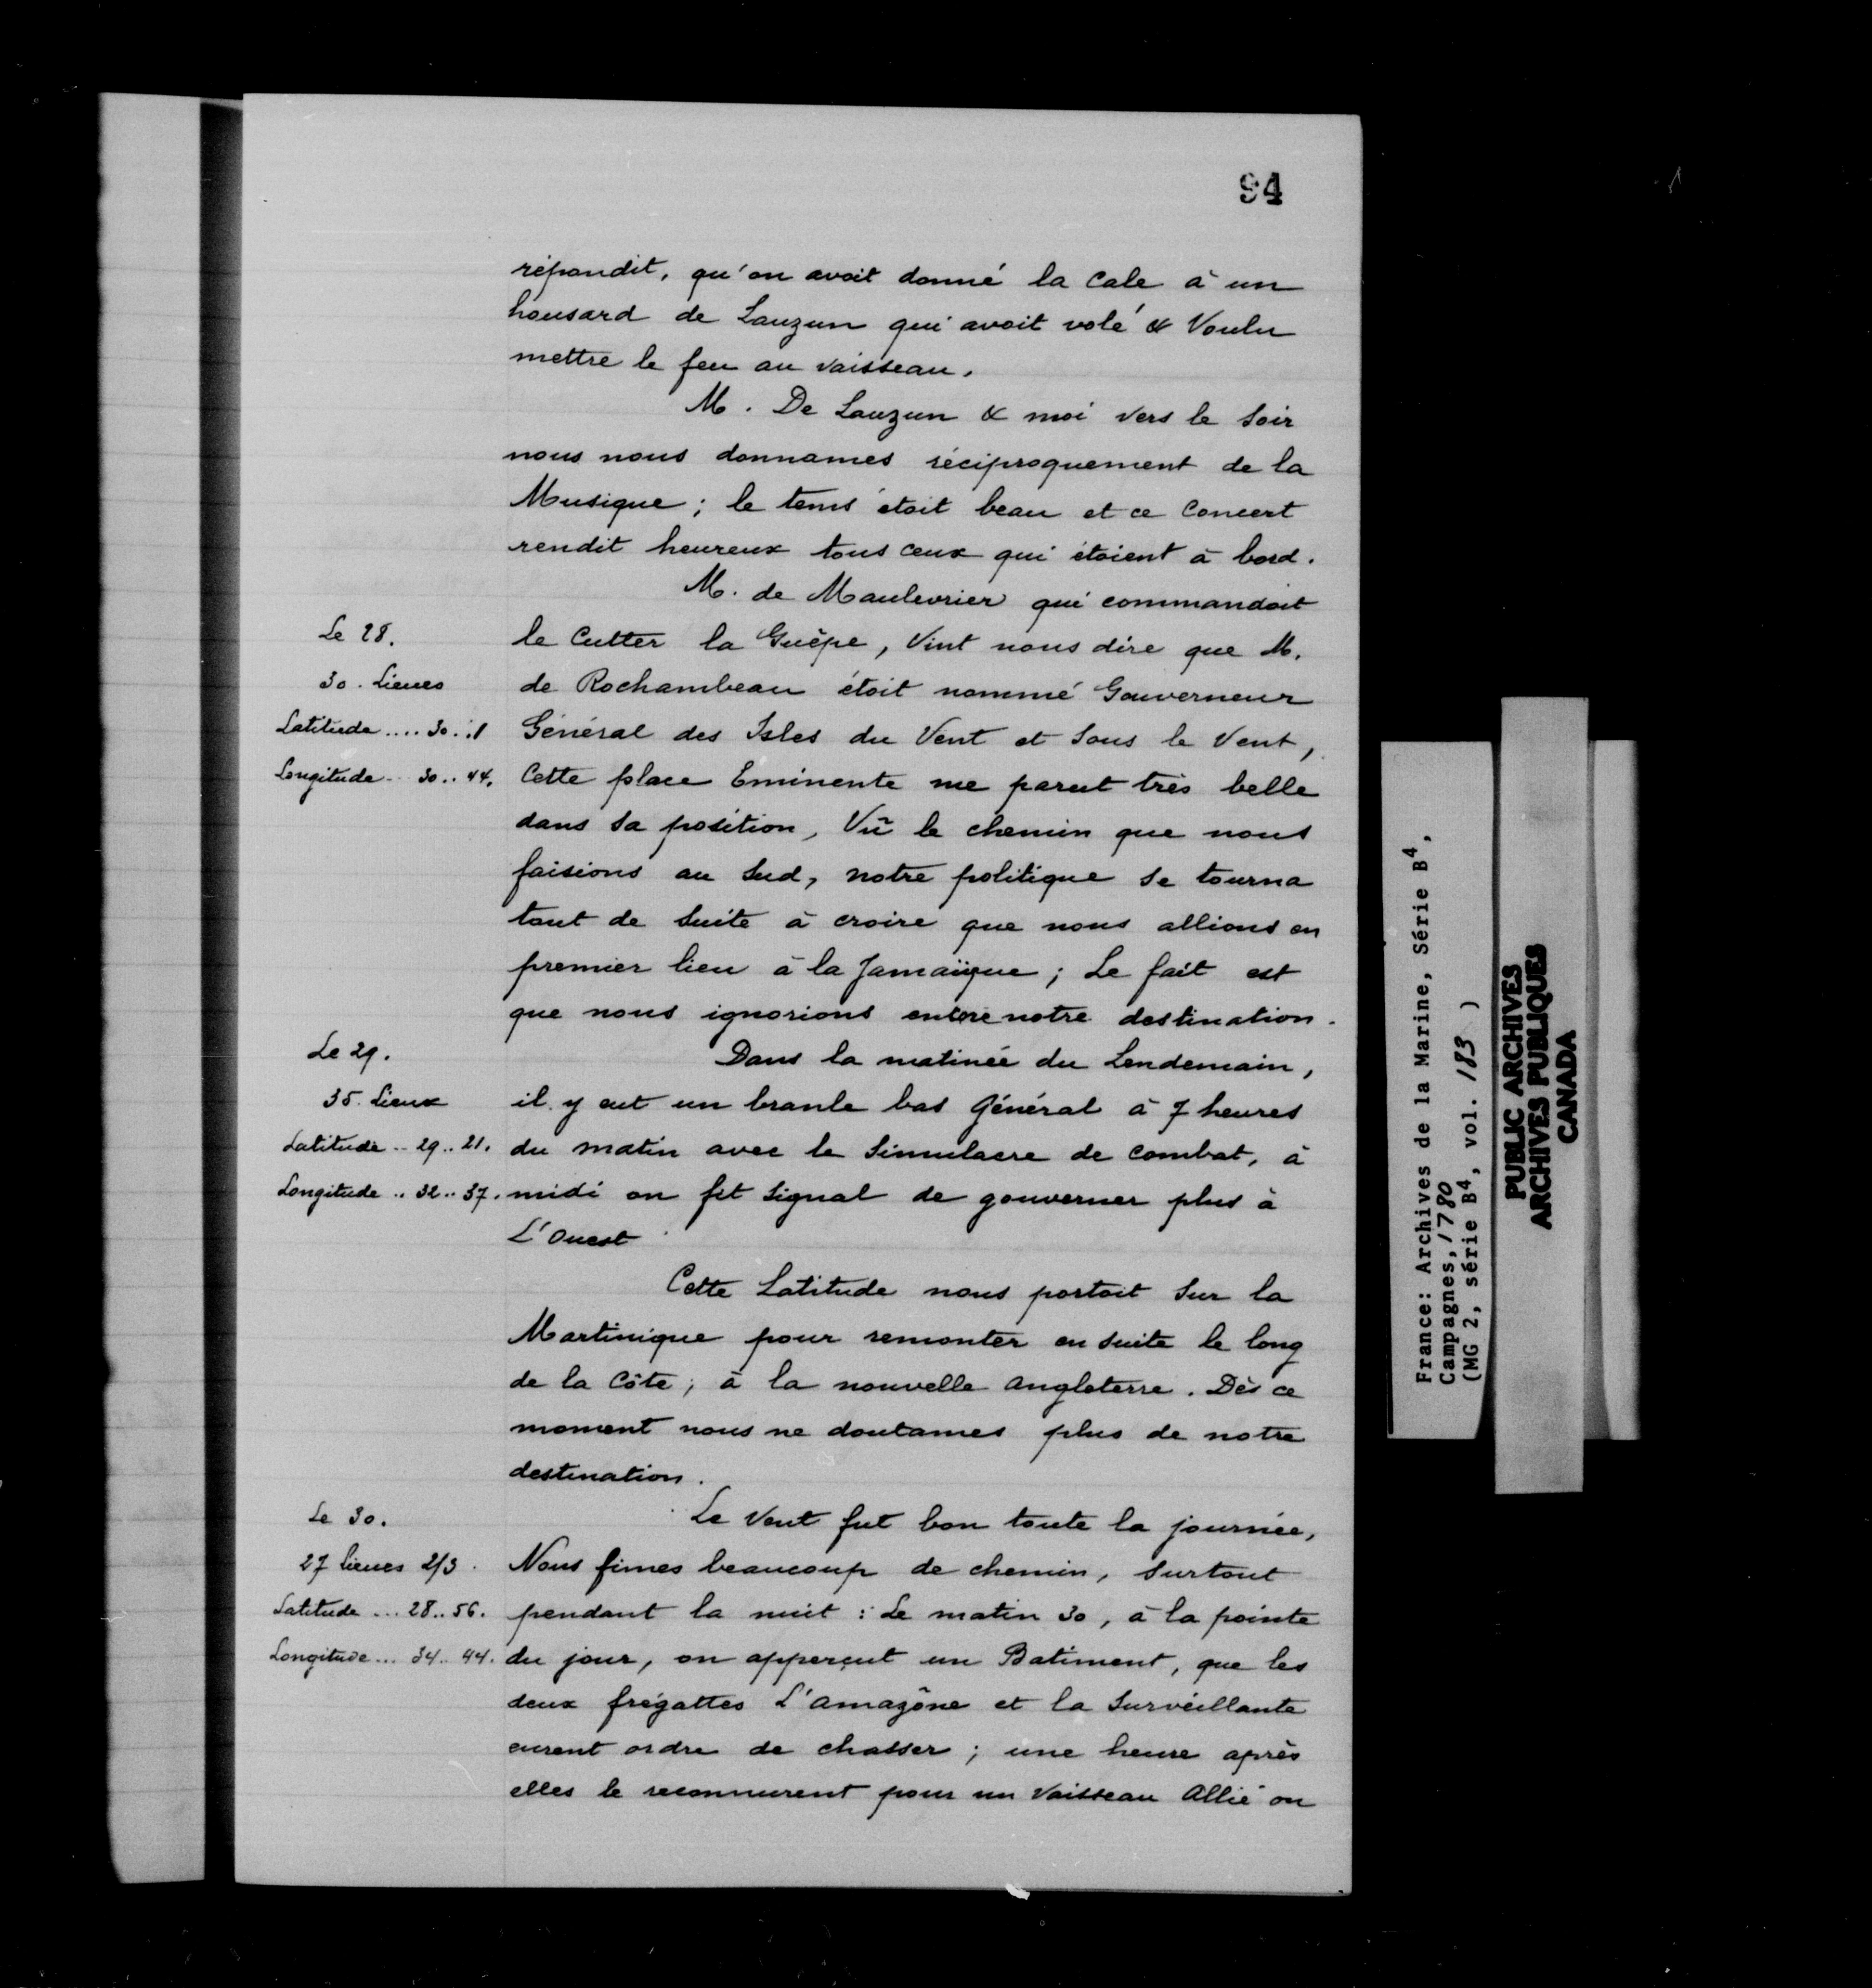 94
répondit, qu'on avoit donné la Cale à un
housard de Lauzun qui avoit volé & Voulu
mettre le feu au vaisseau.
M. De Lauzun & moi vers le Soir
nous nous donnames réciproquement de la
Musique ; le tems étoit beau et ce Concert
rendit heureux tous ceux qui étoient à bord.
M. de Maulevrier qui commandoit
Le 28.
le Cutter la Guêpe, Vint nous dire que M.
30. Lieues
de Rochambeau étoit nommé Gouverneur
Latitude .... 30..1
Général des Isles du Vent et Sous le Vent,
Longitude ... 30..44.
Cette place Eminente me parut très belle
dans sa position, Vû le chemin que nous
faisions au Sud, notre politique se tourna
tout de Suite à croire que nous allions en
premier lieu à la Jamaïque ; Le fait est
que nous ignorions encore notre destination.
Le 29.
Dans la matinée du Lendemain,
35. Lieux
il y eut un branle bas Général à 7 heures
Latitude .. 29..21.
du matin avec le Simulacre de combat, à
Longitude .. 32..37.
midi on fit Signal de gouverner plus à
L'Ouest
Cette Latitude nous portoit Sur la
Martinique pour remonter en suite le long
de la Côte ; à la nouvelle angleterre. Dès ce
moment nous ne doutames plus de notre
destination.
Le 30.
Le Vent fut bon toute la journée,
27 lieues 2/3.
Nous fimes beaucoup de chemin, Surtout
Latitude ... 28..56.
pendant la nuit : Le matin 30, à la pointe
Longitude ... 34..44.
du jour, on apperçut un Batiment, que les
deux frégattes L'amazône et la Surveillante
eurent ordre de chasser ; une heure après
elles le reconnurent pour un Vaisseau Allié ou
France: Archives de la Marine, Série B4,
Campagnes, 1780
(MG 2, série B4, vol. 183 )
PUBLIC ARCHIVES
ARCHIVES PUBLIQUES
CANADA